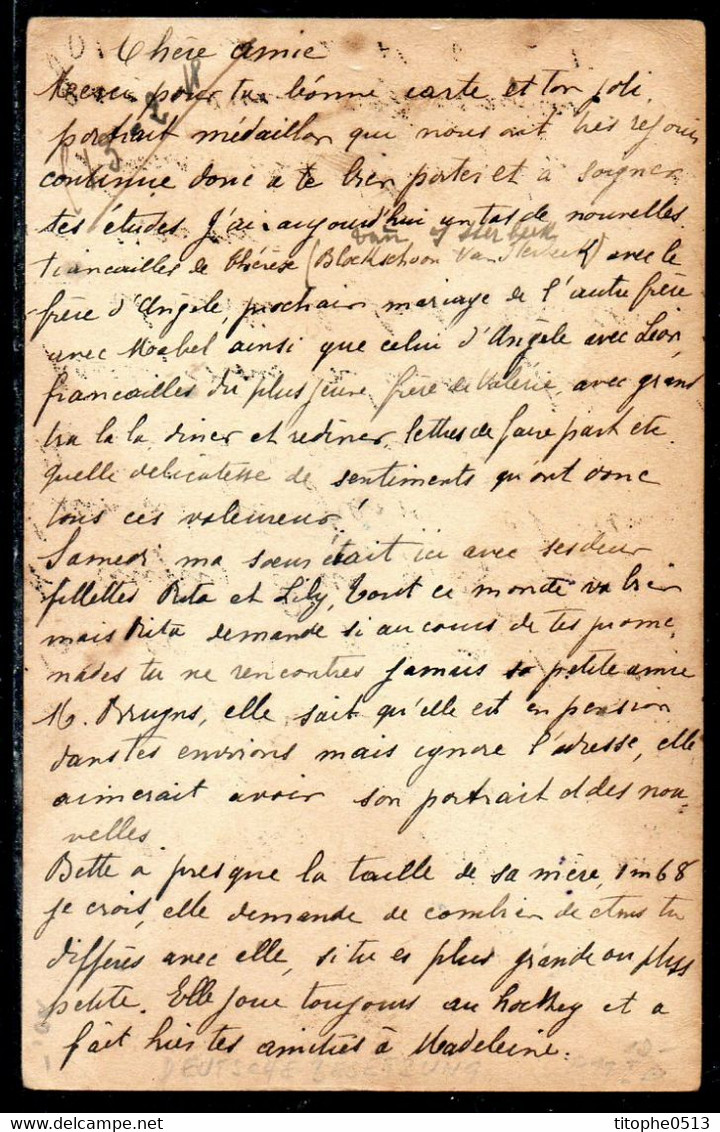 Chère amie
Merci pour ta bonne carte et ton joli
portrait médaillon que nous ont très rejouis
continue donc a te bien porter et à soigner
tes études. J'ai aujourd'hui un tas de nouvelles.
van Sterbeek
fiancailles de Thérèse (Blockschoon Van Sterbeek) avec le
frère d'Angèle, prochain mariage de l'autre frère
avec Mabel ainsi que celui d'Angèle avec Léon,
fiancailles du plus jeune frère de Valerie, avec grand
tra la la diner et rediner, lettres de faire part etc.
quelle delicatesse de sentiments qu'ont donc
tous ces valeureux!
Samedi ma soeur était ici avec ses deux
fillettes Rita et Lily, tout ce monde va bien
mais Rita demande si au cours de tes prome-
nades tu ne rencontres jamais sa petite amie
M. Bruyns, elle sait qu'elle est en pension
dans tes environs mais ignore l'adresse, elle
aimerait avoir son portrait et des nou-
velles
Bette a presque la taille de sa mère, 1m68
je crois, elle demande de combien de ctms tu
différes avec elle, si tu es plus grande ou plus
petite. Elle joue toujours au hockey et a
fait hier tes amitiés à Madeleine.
DEUTSCHE BESETZUNG
titophe0513